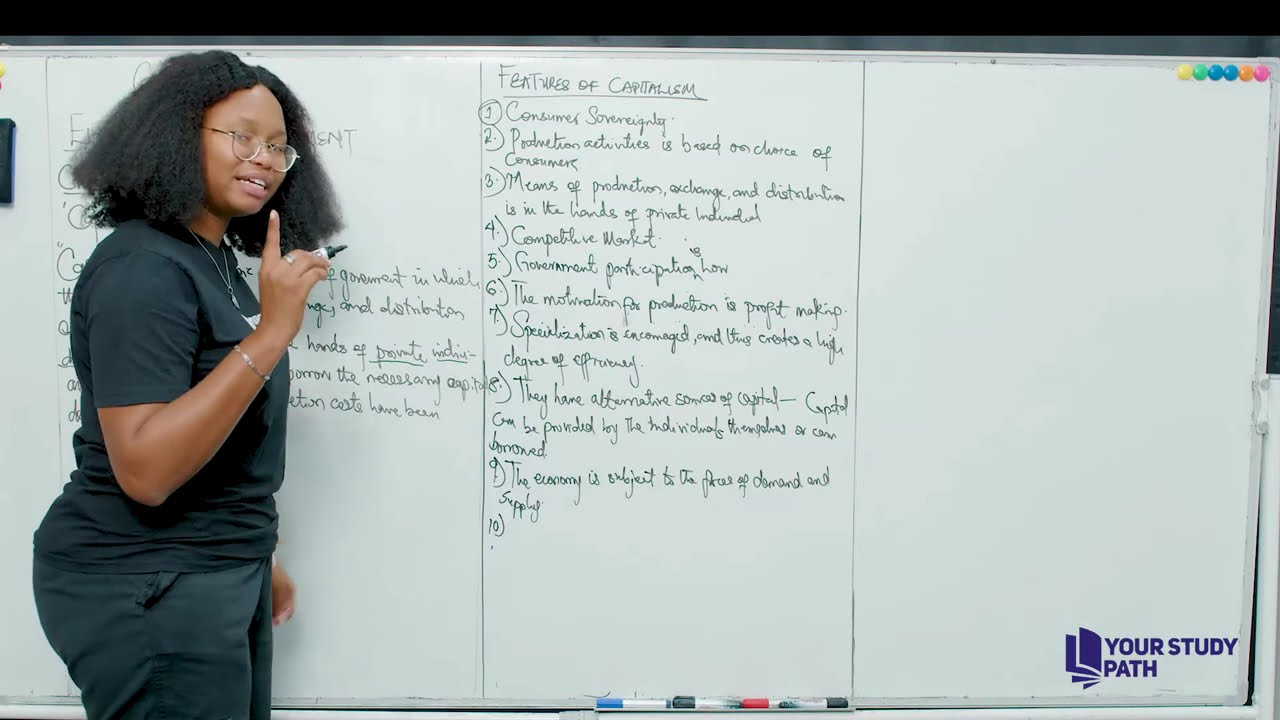 MENT
of goverment in which
and distribution
hands of private indivi-
borrow the necessary capital
costs have been
FEATURES OF CAPITALISM
1 Consumer Sovereignty.
2.) Production activities is based on choice of
Consumers
3.) Means of production, exchange, and distribution
is in the hands of private Individual
4.) Competitive Market.
is
5.) Government participation low
6.) The motivation for production is profit making.
7.) Specialization is encouraged, and thus creates a high
degree of efficiency.
8.) They have alternative sources of capital — Capital
can be provided by the individuals themselves or can
borrowed.
9.) The economy is subject to the forces of demand and
Supply.
10)
YOUR STUDY
PATH